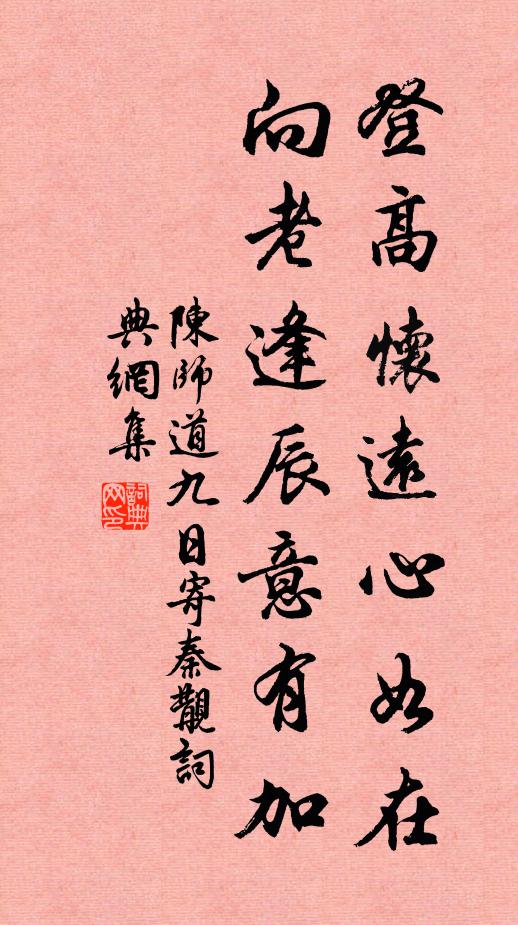 登高懷遠心如在
向老逢辰意有加
陳師道九日寄秦觀詞
典網集
詞典網印